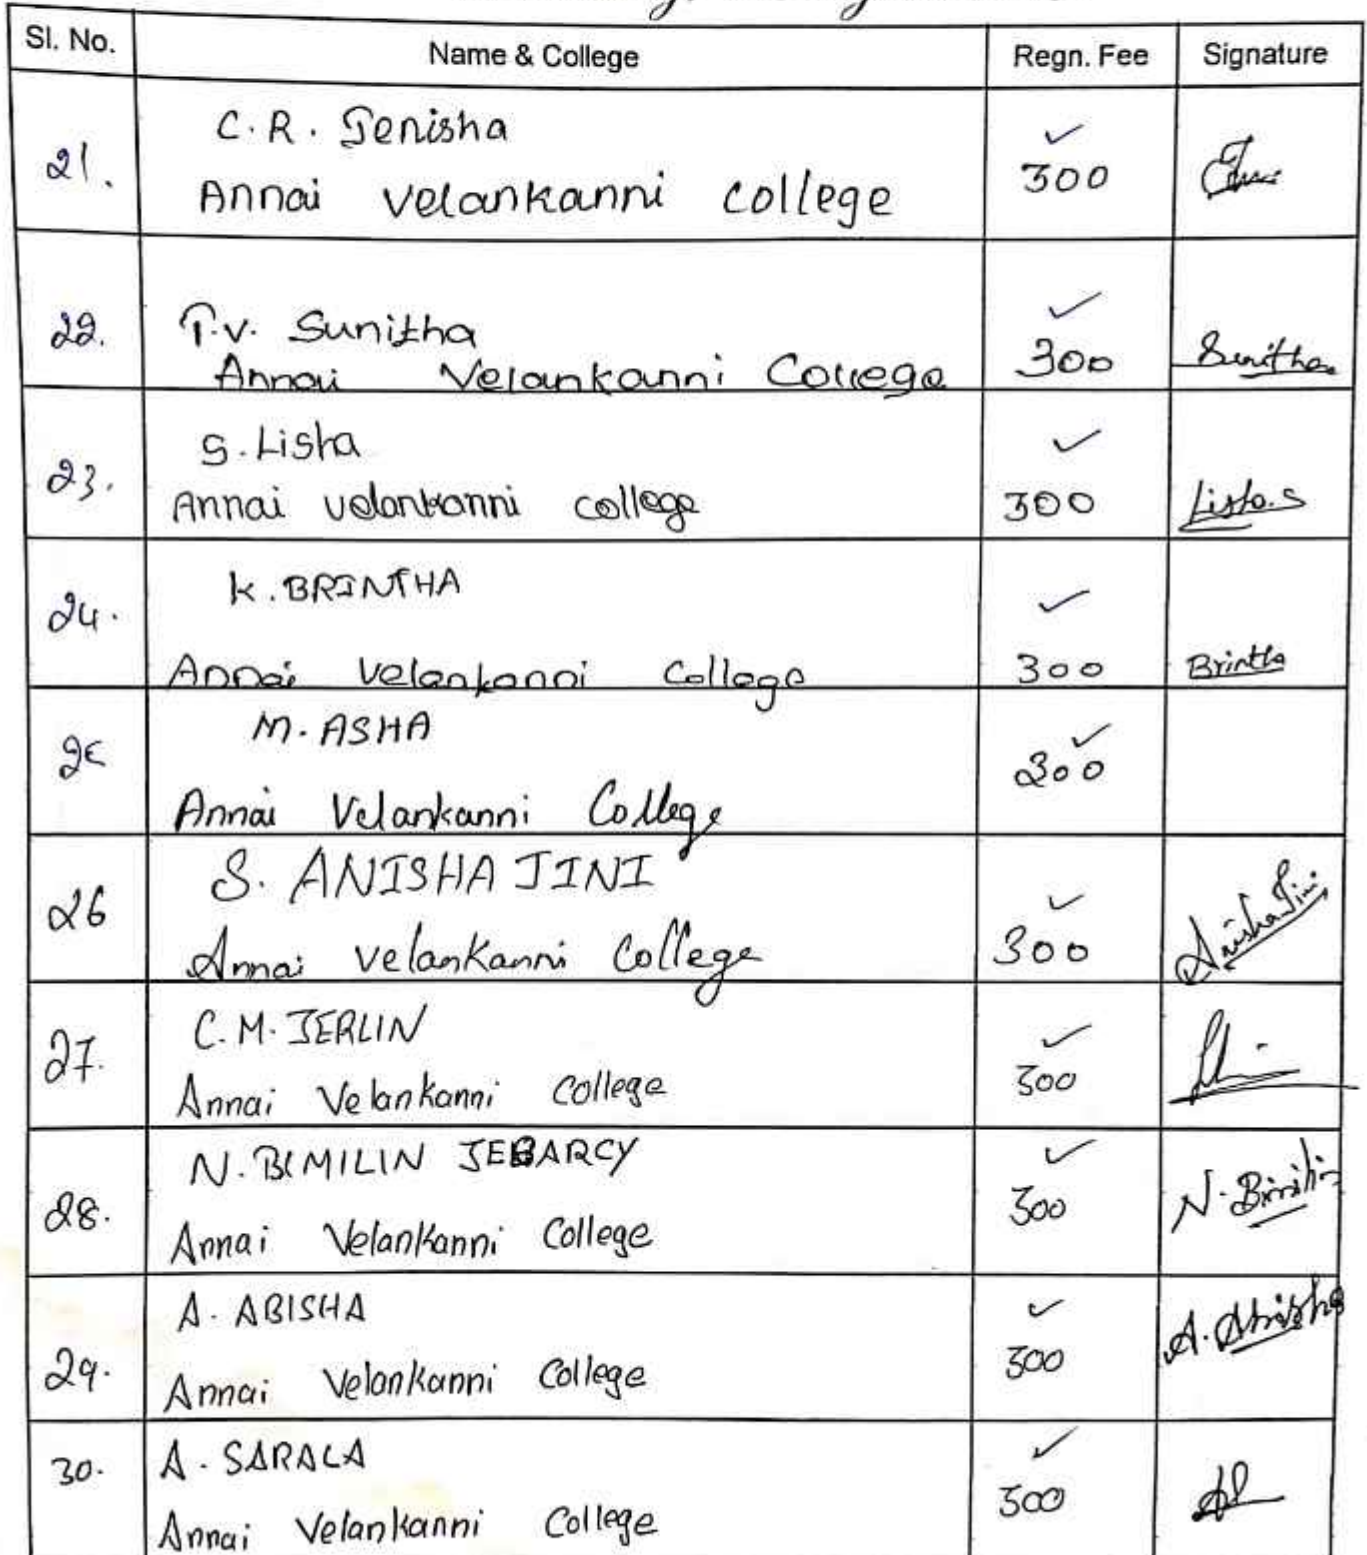 Sl. No. Name & College Regn. Fee Signature
21. C.R. Jenisha
Annai Velankanni College 300
22. T.V. Sunitha
Annai Velankanni College 300 Sunitha
23. S. Lisha
Annai Velankanni College 300 Lisha.S
24. K. BRINTHA
Annai Velankanni College 300 Brintha
25 M. ASHA 300
Annai Velankanni College
26 S. ANISHA JINI
Annai Velankanni College 300 Anisha Jini
27. C.M. JERLIN
Annai Velankanni College 300
28. N. BIMILIN JEBARCY
Annai Velankanni College 300 N. Bimilin
29. A. ABISHA
Annai Velankanni College 300 A. Abisha
30. A. SARALA
Annai Velankanni College 300